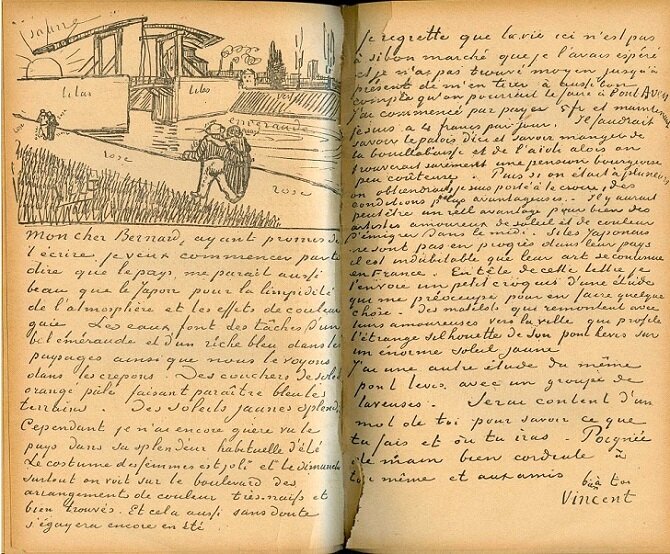 jaune
lilas
lilas
vert
emeraude
rose
rose
Mon cher Bernard, ayant promis de
t'écrire, je veux commencer par te
dire que le pays me parait aussi
beau que le Japon pour la limpidité
de l'atmosphère et les effets de couleur
gaie. Les eaux font des tâches d'un
bel éméraude et d'un riche bleu dans les
paysages ainsi que nous le voyons
dans les crepons. Des couchers de soleil
orangé pâle faisant paraître bleu les
terrains. Des soleils jaunes splendides.
Cependant je n'ai encore guère vu le
pays dans sa splendeur habituelle d'été
Le costume des femmes est joli et le dimanche
surtout on voit sur le boulevard des
arrangements de couleur très naïfs et
bien trouvés. Et cela aussi sans doute
s'égayera encore en été
Je regrette que la vie ici n'est pas
à si bon marché que je l'avais espéré
et je n'ai pas trouvé moyen jusqu'à
présent de m'en tirer à aussi bon
compte qu'on pourrait le faire à Pont Aven.
J'ai commencé par payer 5 fr et maintenant
je suis à 4 francs par jour. Il faudrait
savoir le patois d'ici et savoir manger de
la bouillabaisse et de l'aïoli alors on
trouverait sûrement une pension bourgeoise
peu coûteuse. Puis si on était à plusieurs
on obtiendrait, je suis porté à le croire, des
conditions plus avantageuses. Il y aurait
peut être un réel avantage pour bien des
artistes amoureux de soleil et de couleur
d'émigrer dans le midi. Si les Japonais
ne sont pas en progrès dans leur pays
il est indubitable que leur art se continue
en France. En tête de cette lettre je
t'envoie un petit croquis d'une étude
qui me préoccupe pour en faire quelque
chose. Des matelots qui remontent avec
leurs amoureuses vers la ville qui profile
l'étrange silhouette de son pont levis sur
un énorme soleil jaune
J'ai une autre étude du même
pont levis avec un groupe de
laveuses. Serai content d'un
mot de toi pour savoir ce que
tu fais et où tu iras. Poignée
de main bien cordiale à
toi même et aux amis
b. à toi
Vincent